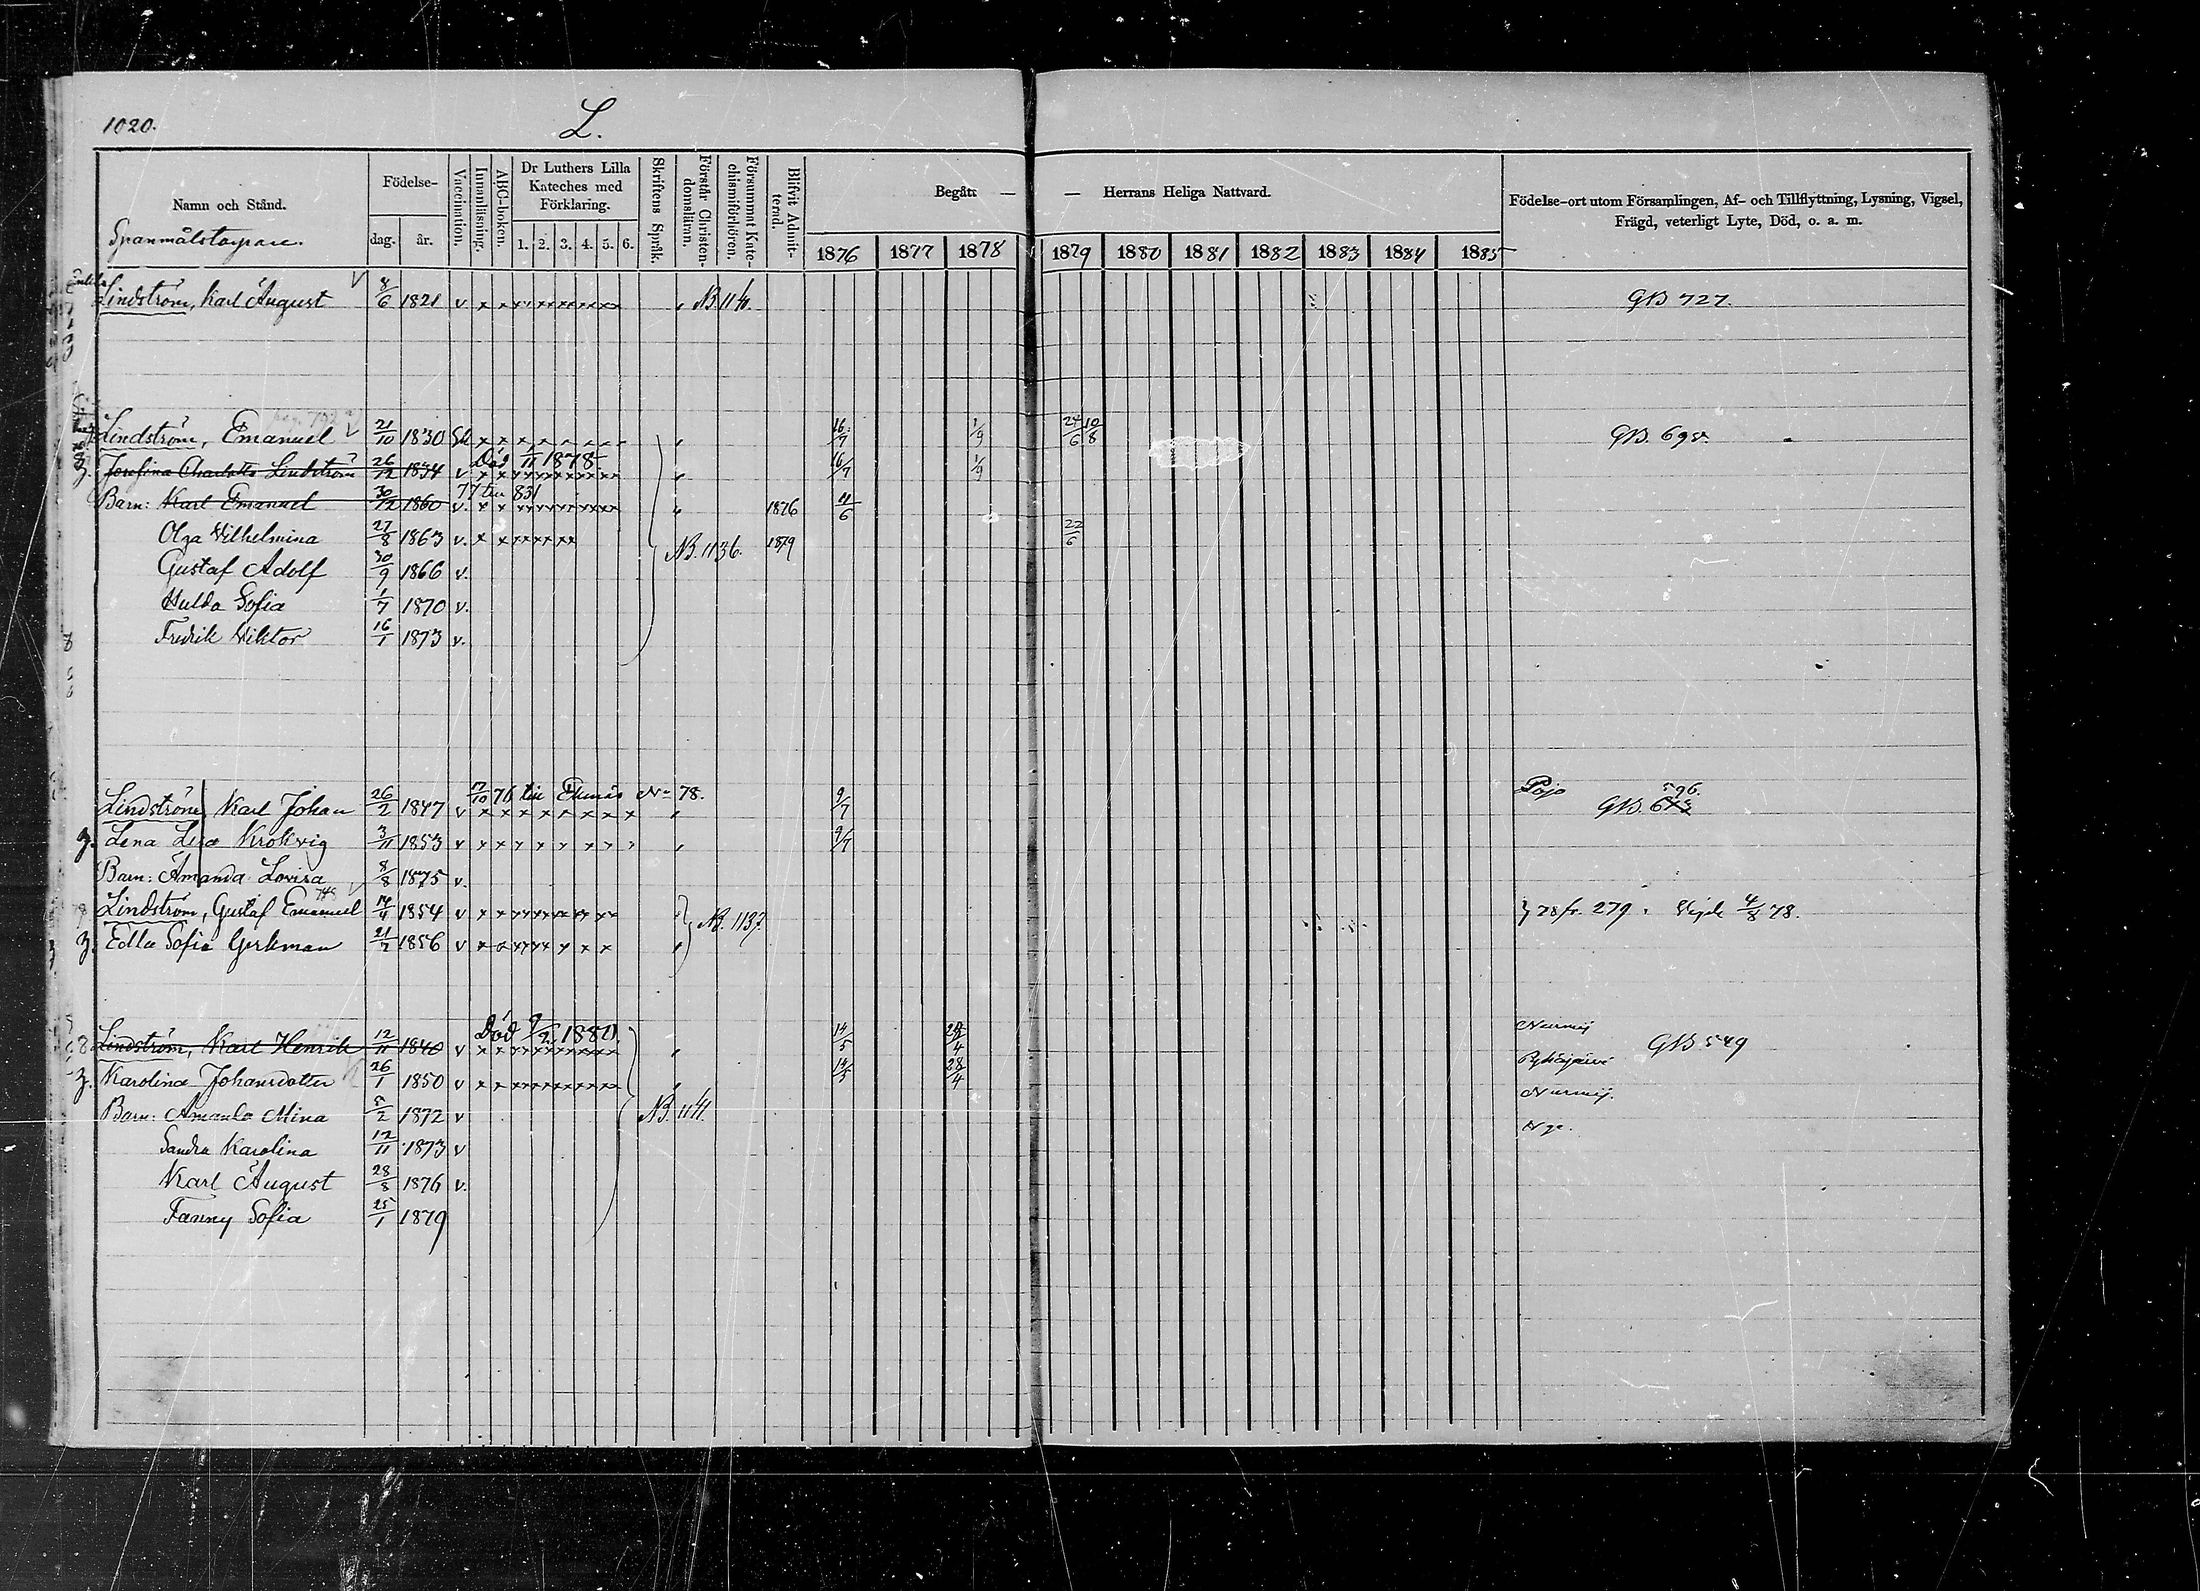 1020.
L.
Namn och Stånd.
Födelse-
dag.
år.
Vaccination.
Innanläsning.
ABC-boken.
Dr Luthers Lilla Kateches med Förklaring.
1. 2. 3. 4. 5. 6.
Skriftens Språk.
Förstår Christen-domsläran.
Försummat Kate-chismiförhören.
Blifvit Admit-terad.
Begått — — Herrans Heliga Nattvard.
1876 1877 1878 1879 1880 1881 1882 1883 1884 1885
Födelse-ort utom Församlingen, Af- och Tillflyttning, Lysning, Vigsel, Frägd, veterligt Lyte, Död, o. a. m.
Lindström, Karl August 8/6 1821 v GB 727.
Lindström, Emanuel 21/10 1830 16/7 1/9 24/6 10/8
Död 1/11 1878.
Josefina Charlotta Lindström 26/12 1834 v. 16/7 1/9
77 till 831
Barn: Karl Emanuel 30/12 1860 v. 1876 11/6
Olga Vilhelmina 27/8 1863 v. NB. 1136. 1879 22/6
Gustaf Adolf 30/9 1866 v.
Hulda Sofia 1/7 1870 v.
Fredrik Viktor 16/1 1873 v.
17/10 76 till Ekenäs No 78. Pojo 596.
Lindström, Karl Johan 26/2 1847 v 9/7 GB.
Lena Lisa Krokvig 3/11 1853 v 9/7
Barn: Amanda Lovisa 8/8 1875 v.
Lindström, Gustaf Emanuel 14/4 1854 v NB. 1137. 78 fr. 279. Vigde 4/8 78.
Edla Sofia 21/2 1856 v
Död 9/2 1880.
Lindström, Karl Henrik 12/11 1840 v 14/5 28/4 Nurmij. GB 549
Karolina Johansdotter 26/1 1850 v 14/5 28/4
Barn: Amanda Mina 8/2 1872 v Nurmij.
Sandra Karolina 12/11 1873 v
Karl August 28/8 1876 v.
Fanny Sofia 25/1 1879